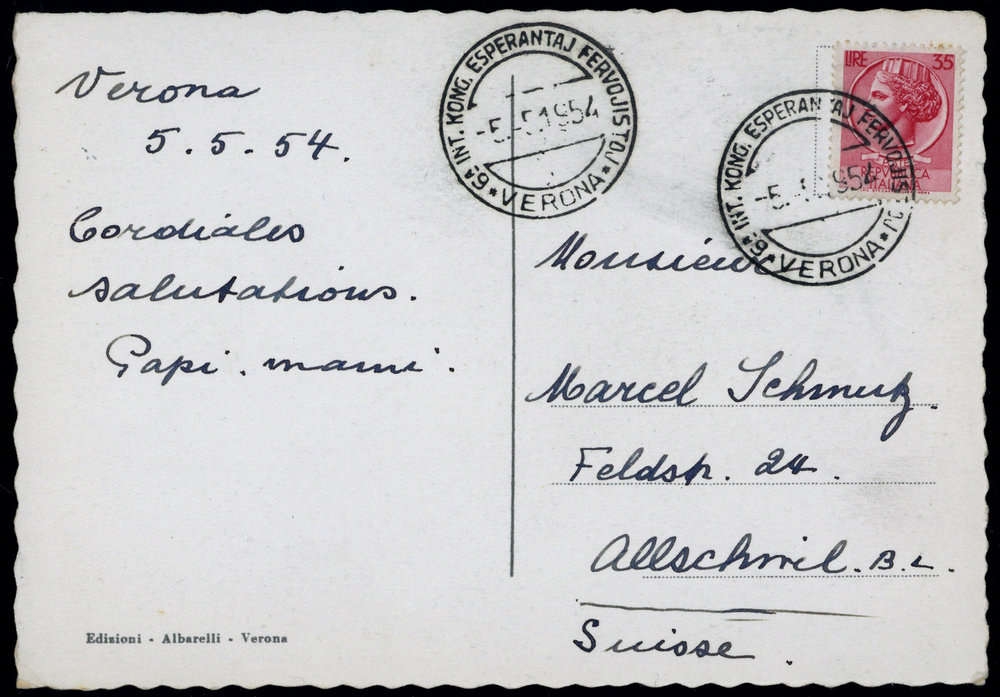 Verona
5.5.54.
Cordiales
salutations.
Papi. mami.
Edizioni - Albarelli - Verona
6ª INT. KONG. ESPERANTAJ FERVOJISTOJ
-5.-5.1954
* VERONA *
LIRE 35
REPVBBLICA
ITALIANA
6ª INT. KONG. ESPERANTAJ FERVOJISTOJ
-5.-5.1954
* VERONA *
Monsieur
Marcel Schmutz.
Feldstr. 24.
Allschwil. B.L.
Suisse.